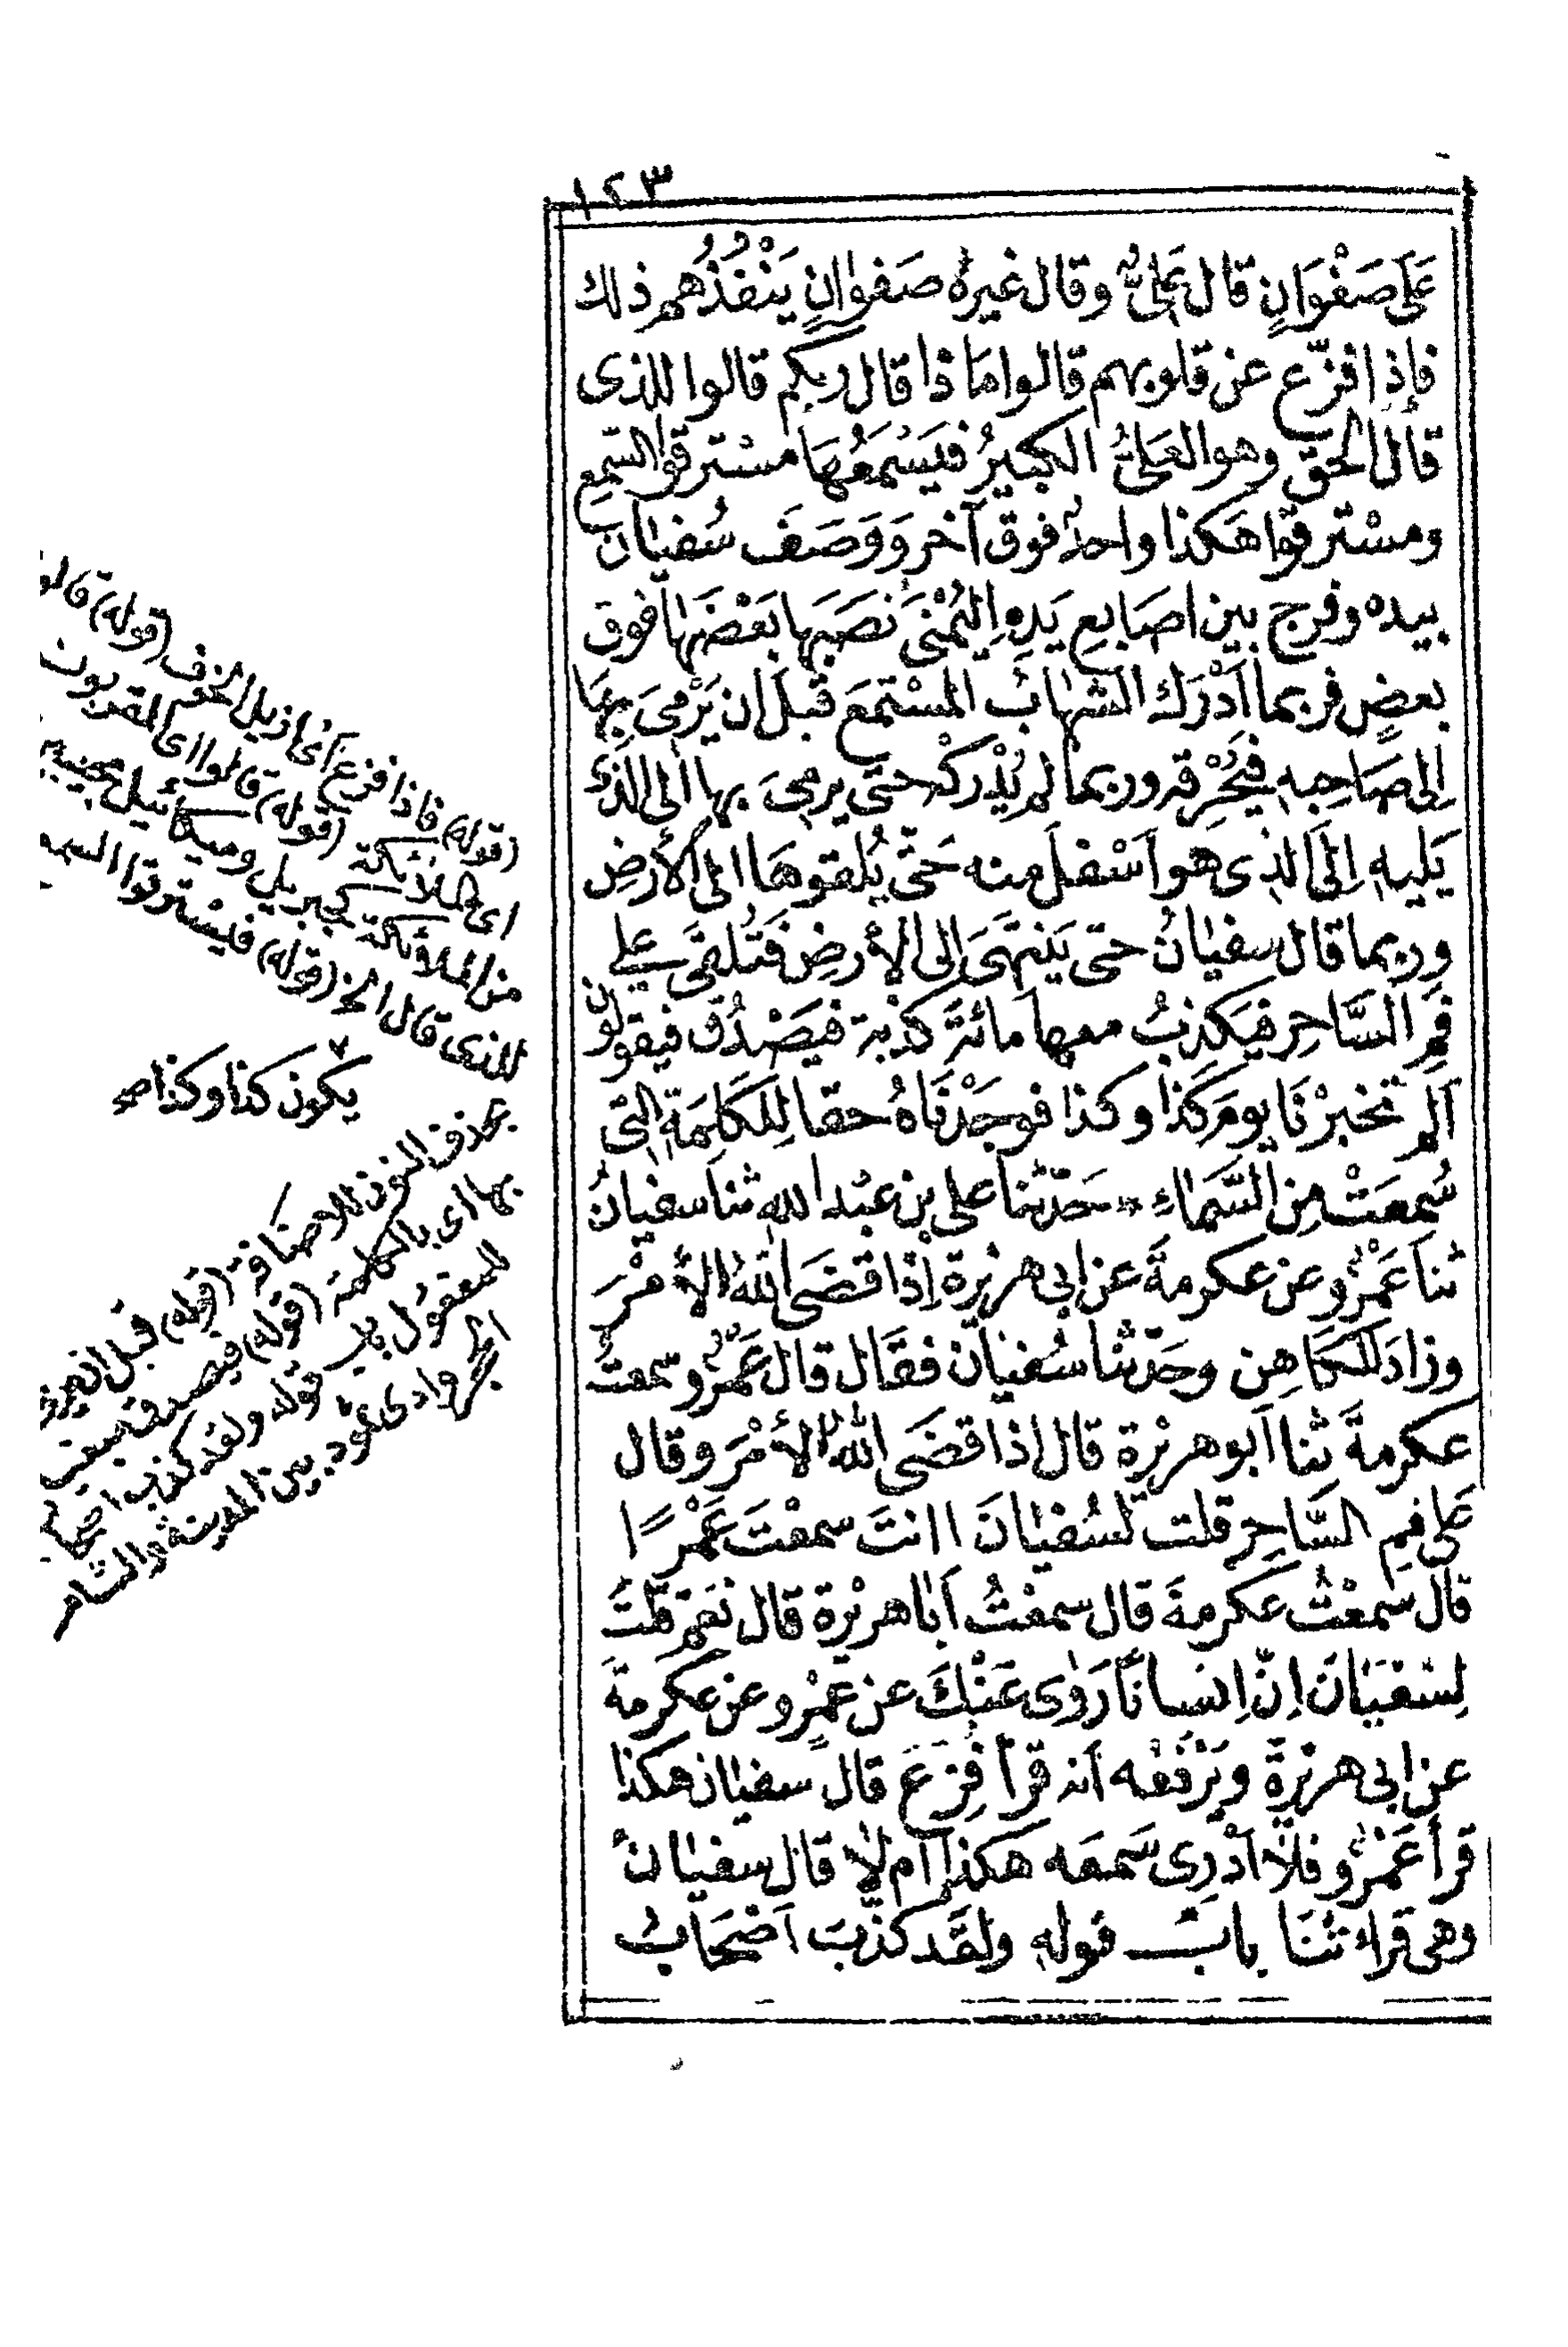 ١٢٣
عَلَى صَفْوَانٍ قال عَلِىٌّ وقال غيرهُ صَفوانٍ يَنْفُذُهم ذلك
فإذا فزّع عن قلوبهم قالوا مَاذا قال ربكم قالوا للذى
قال الحق وهو العَلىُّ الكبيرُ فَيَسْمَعُهَا مسْترقوا السّمع
ومسْترقوا هَكذا واحدٌ فوق آخر وَوَصَفَ سُفيان
بيده وفرج بين اصَابع يَدِهِ اليُمْنَى نَصَبَها بَعْضَها فوق
بعضٍ فربما اَدْرَك الشهابُ المسْتمعَ قبلَ ان يَرْمىَ بِهَا
اِلى صَاحِبِهِ فيُحْرِقَه وربما لم يُدْركْه حتى يرمىَ بها الى الذى
يَليهِ اِلَى الذِى هو اَسْفلَ منه حَتّى يُلقوهَا الى الأرضِ
وربما قال سفيانُ حتى يَنتهَىَ اِلى الأرضِ فَتُلقَى على
فمِ السَّاحِرِ فيَكذِبُ معها مائةَ كذْبة فيَصْدُق فيقولون
اَلم تخبرْنَا يومَ كَذَا وكذا فوجَدْنَاهُ حقا لِلكَلِمَةِ التى
سُمِعَتْ مِنَ السَّمَاءِ * حَدّثنا على بن عبْد الله ثنا سفيانُ
ثنا عَمْرٌو عن عكرمةَ عن ابى هريْرة اِذَا قضَى اللهُ الأمْرَ
وزادَ للكَاهِن وحَدّثنا سُفيَان فقَال قال عَمْرٌو سمعتُ
عكرمةَ ثنا اَبو هريْرة قال اذا قضَى اللهُ الأمْرَ وقال
عَلى فمِ السَّاحِرِ قلت لسُفيَانَ اانتَ سمعْتَ عَمْرًا
قال سَمعْتُ عكرمةَ قال سمعْتُ اَبا هريْرة قال نعَم قلتُ
لِسُفيَانَ اِنّ اِنسانًا رَوٰى عَنْكَ عن عَمْرٍو عن عكرمةَ
عن ابى هريْرةَ ويَرْفعُه اَنه قرأ فُزِعَ قال سفيان هكذا
قرأ عَمْرٌو فلا اَدْرِى سَمعَه هكذا اَم لا قال سفيانُ
وهى قراءتنَا باب قوله ولقَد كذّبَ اَصْحَابُ
(قوله) فاذا فزع اى ازيل الخوف (قوله) قالوا
اى الملائكة (قوله) قالوا اى المقربون
من الملائكة كجبريل وميكائيل مجيبين
للذى قال الخ (قوله) فيسترقوا السمع
يكون كذا وكذا صح
بحذف النون للاضافة (قوله) قبل ان يرمى
بها اى بالكلمة (قوله) فيصدق
قوله ولقد كذب اصحاب
الحجر وادى ثمود بين المدينة والشام